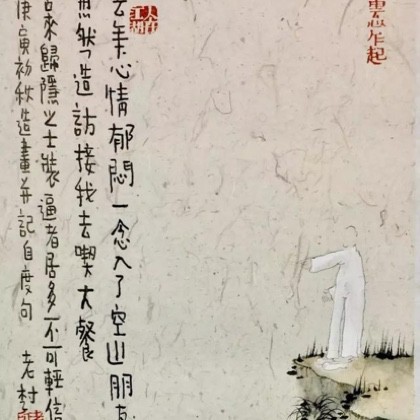 乍起
人在江湖
去年心情郁悶一念入了空山朋友
然造訪接我去喫大餐
古來歸隱之士裝逼者居多不可輕信
庚寅初秋造畫并記自度句 老树